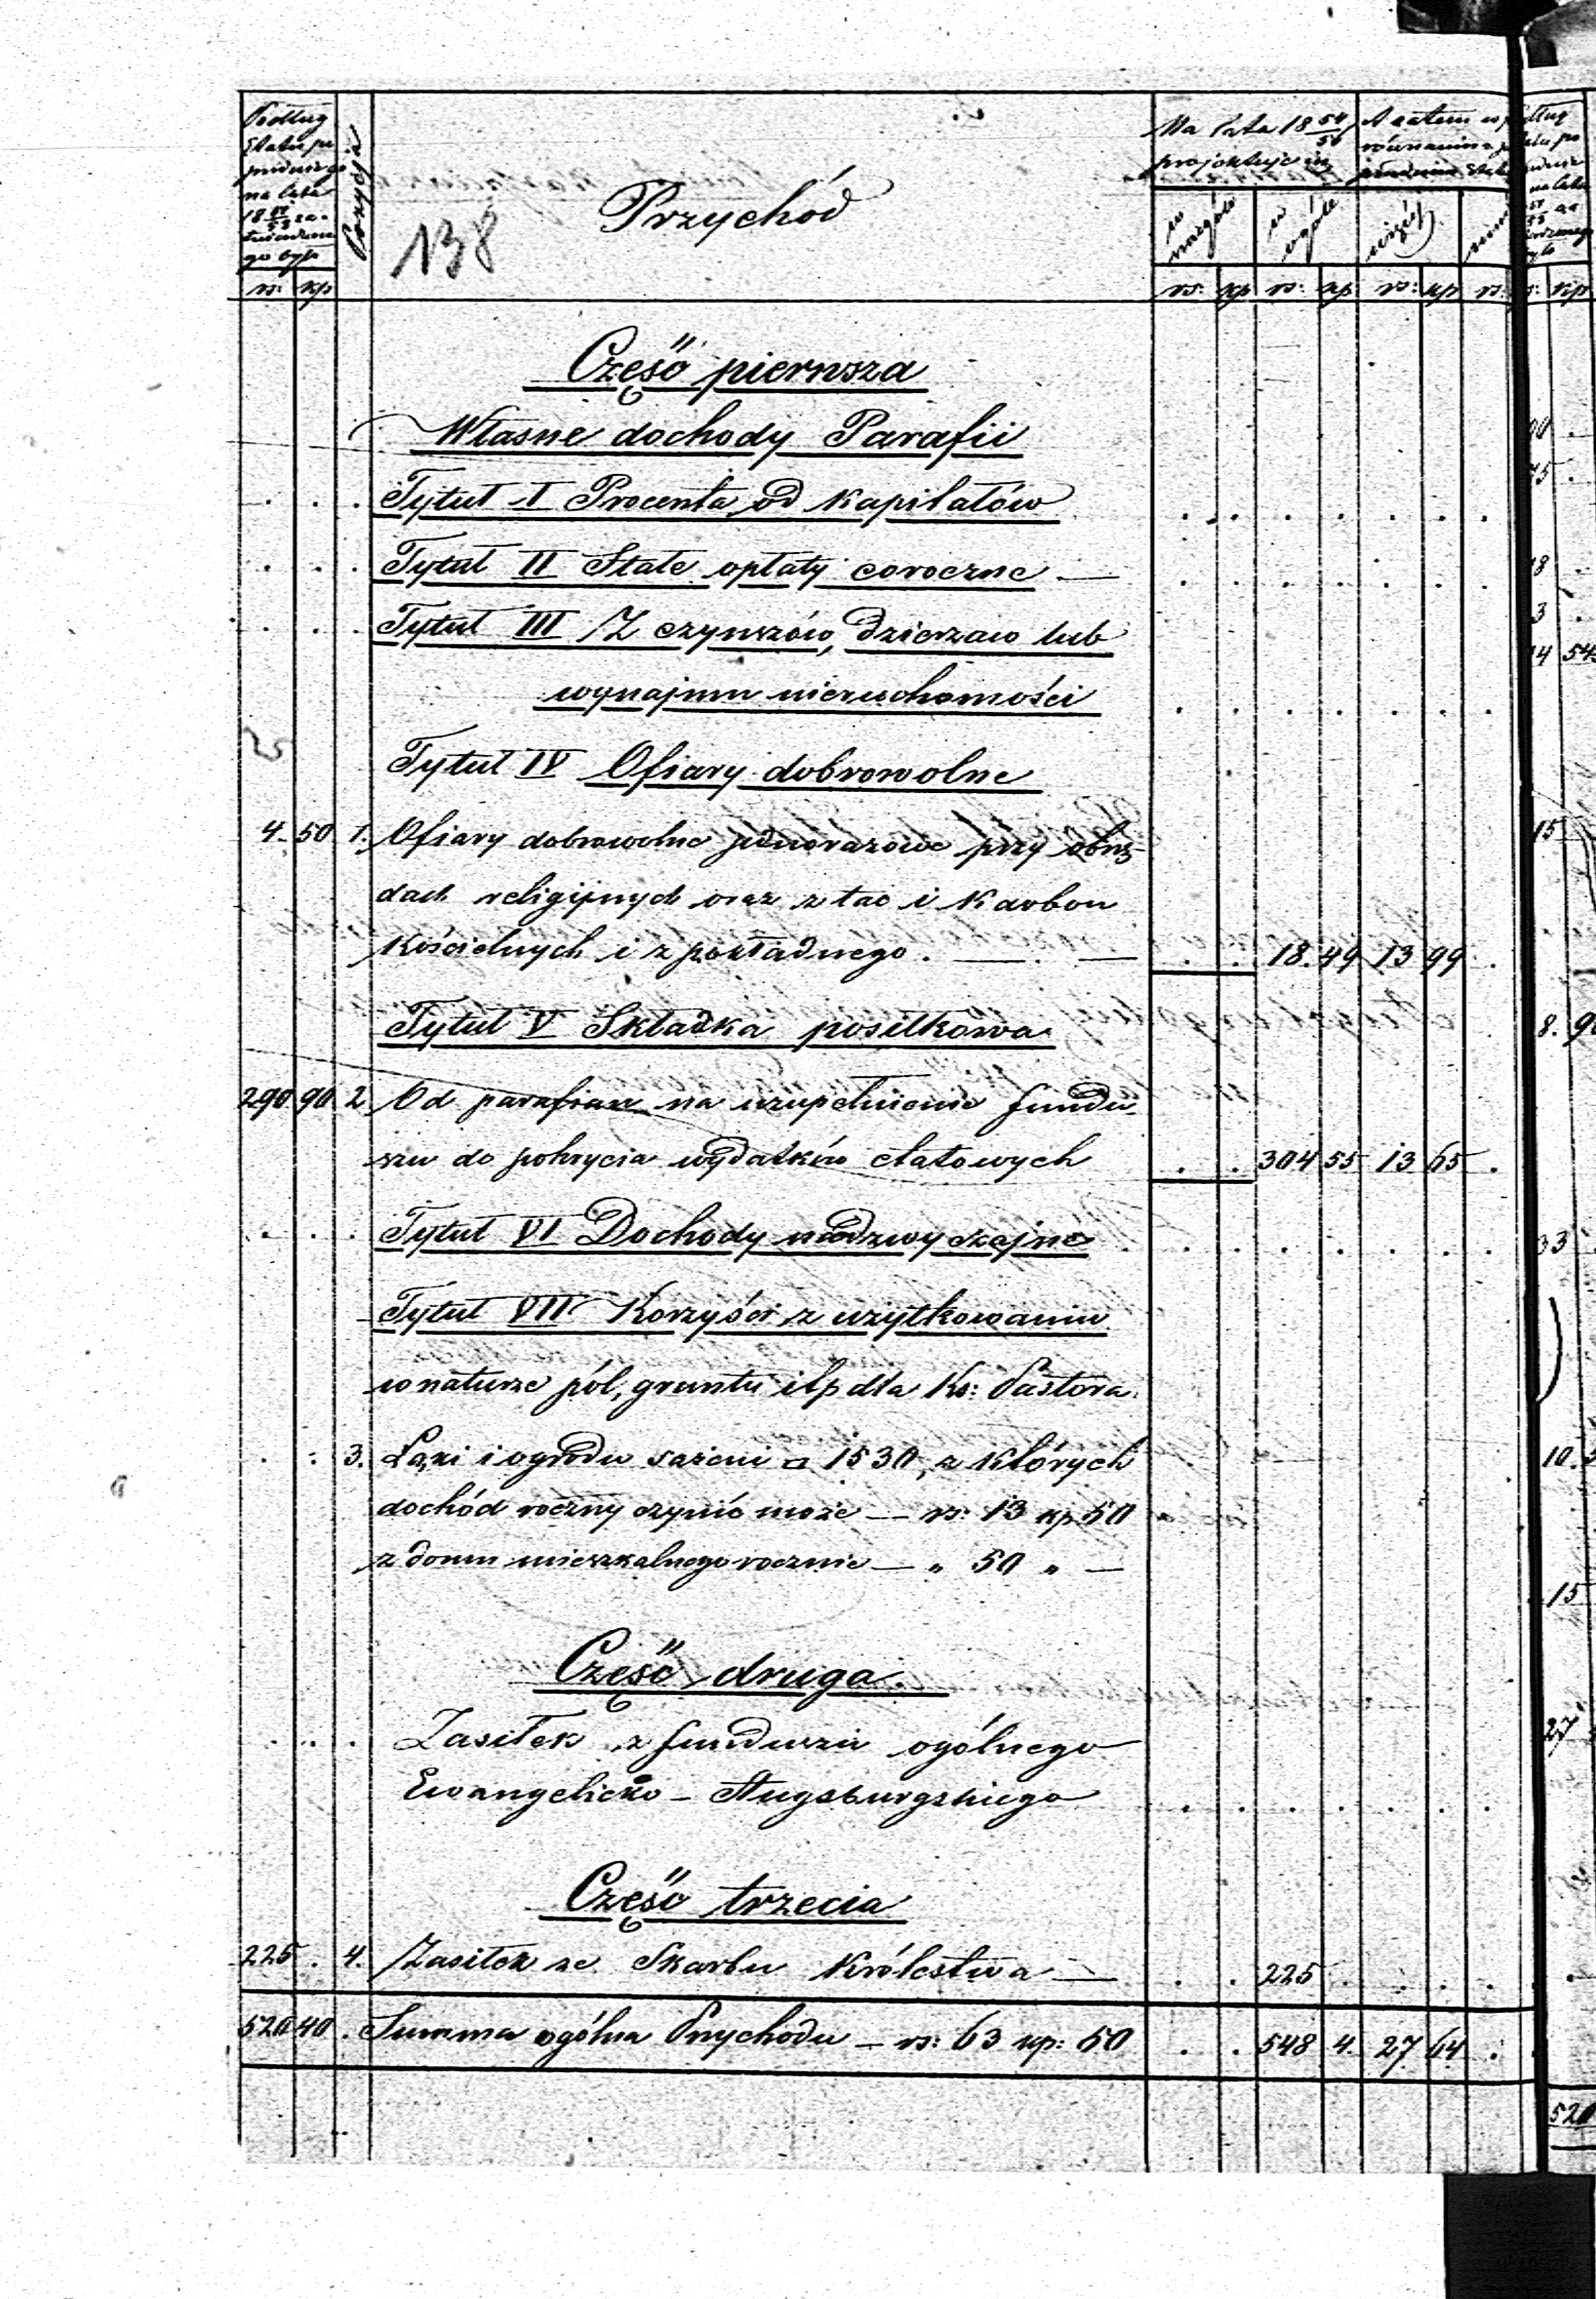 Podług
Etatu po
przedniego
na lata
18 51/53 za-
twierdzone
go było
rs: kp
Pozycja
138
Przychód
Na lata 18 54/56
projektuje się
w szczególe
w ogóle
A zatem w po
równaniu z
Etat
więcej
mni
rs: kp rs: kp rs: kp rs:
Część pierwsza
Własne dochody Parafii
Tytuł I Procenta od kapitałów
Tytuł II Stałe opłaty coroczne —
Tytuł III Z czynszów, dzierzaw lub
wynajmu nieruchomości
25
Tytuł IV Ofiary dobrowolne
4. 50 1. Ofiary dobrowolne jednorazowe przy obrzę-
dach religijnych oraz z tac i Karbon
Kościelnych i z pokładnego . — . — 18. 49 13 99
Tytuł V Składka posiłkowa
290 90 2 Od parafian na uzupełnienie fundu-
szu do pokrycia wydatków etatowych . . 304 55 13 65 .
Tytuł VI Dochody nadzwyczajne
Tytuł VII Korzyści z użytkowania
w naturze pól, gruntu itp dla Ks: Pastora
. : 3. Łąki i ogrodu sażeni □ 1530, z których
dochód roczny czynić może — rs: 13 kp 50
z domu mieszkalnego rocznie — „ 50 „ —
Część druga
Zasiłek z funduszu ogólnego
Ewangelicko - Augsburgskiego
Część trzecia
225 . 4. Zasiłek ze Skarbu Królestwa — . . 225 .
520 40 . Summa ogólna Przychodu — rs: 63 kp: 50 . . 548 4. 27 64 .